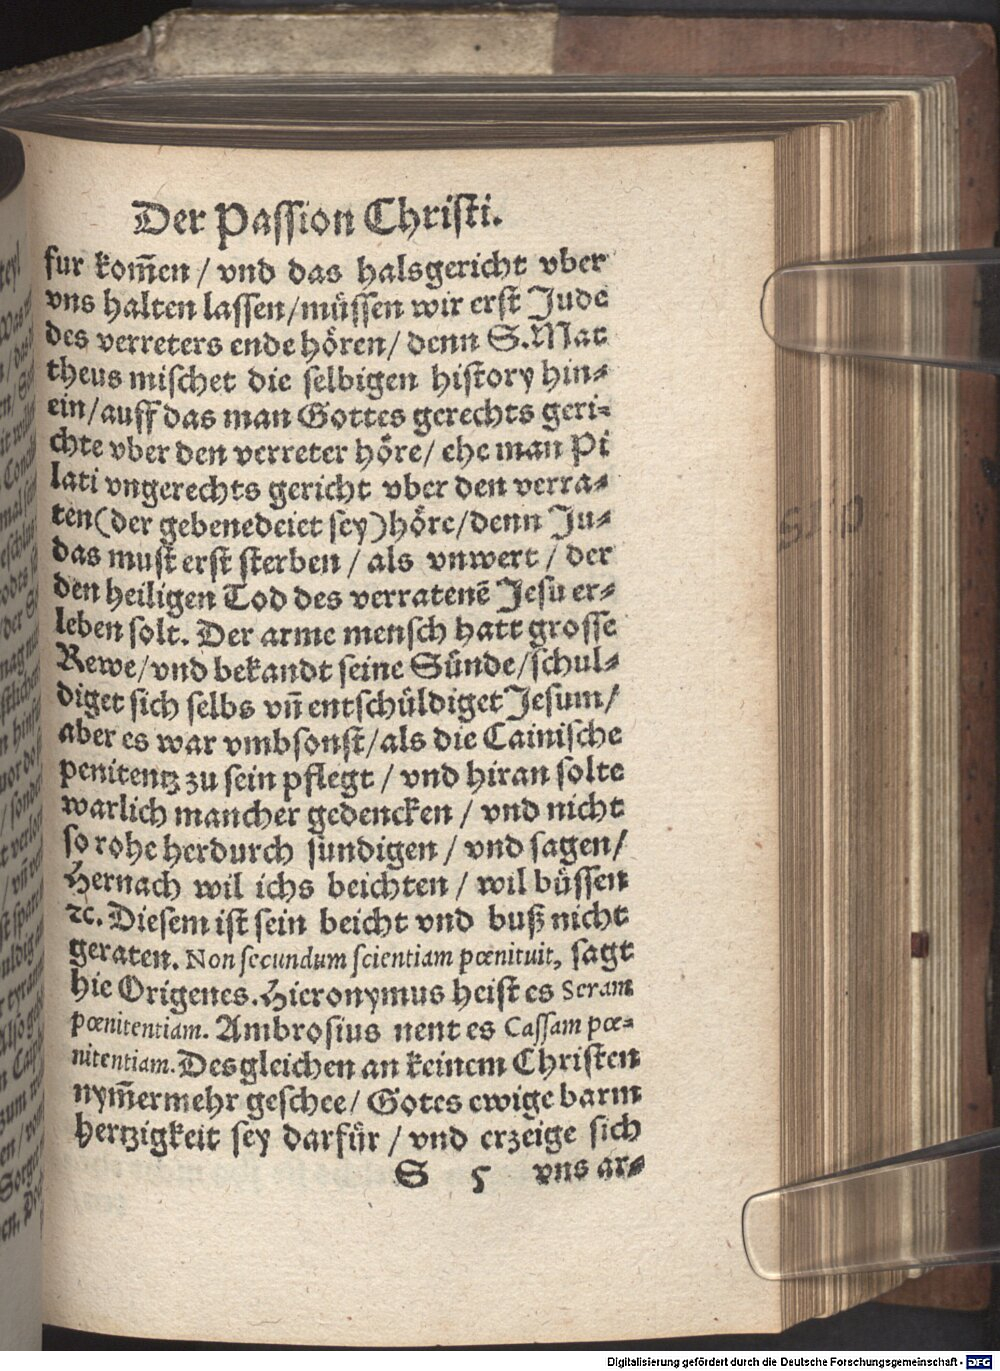 Der Passion Christi.
fur kom̃en / vnd das halsgericht vber
vns halten lassen / müssen wir erst Jude
des verreters ende hören / denn S. Mat
theus mischet die selbigen history hin⸗
ein / auff das man Gottes gerechts geri⸗
chte vber den verreter höre / ehe man Pi
lati vngerechts gericht vber den verra⸗
ten (der gebenedeiet sey) höre / denn Ju⸗
das must erst sterben / als vnwert / der
den heiligen Tod des verratenē Jesu er⸗
leben solt. Der arme mensch hatt grosse
Rewe / vnd bekandt seine Sünde / schul⸗
diget sich selbs vñ entschüldiget Jesum /
aber es war vmbsonst / als die Cainische
penitentz zu sein pflegt / vnd hiran solte
warlich mancher gedencken / vnd nicht
so rohe herdurch sundigen / vnd sagen /
Hernach wil ichs beichten / wil büssen
ꝛc. Diesem ist sein beicht vnd buß nicht
geraten. Non secundum scientiam pœnituit, sagt
hie Origenes. Hieronymus heist es Seram
pœnitentiam. Ambrosius nent es Cassam pœ⸗
nitentiam. Desgleichen an keinem Christen
nym̃ermehr geschee / Gotes ewige barm
hertzigkeit sey darfür / vnd erzeige sich
S 5 vns ar⸗
Digitalisierung gefördert durch die Deutsche Forschungsgemeinschaft - DFG